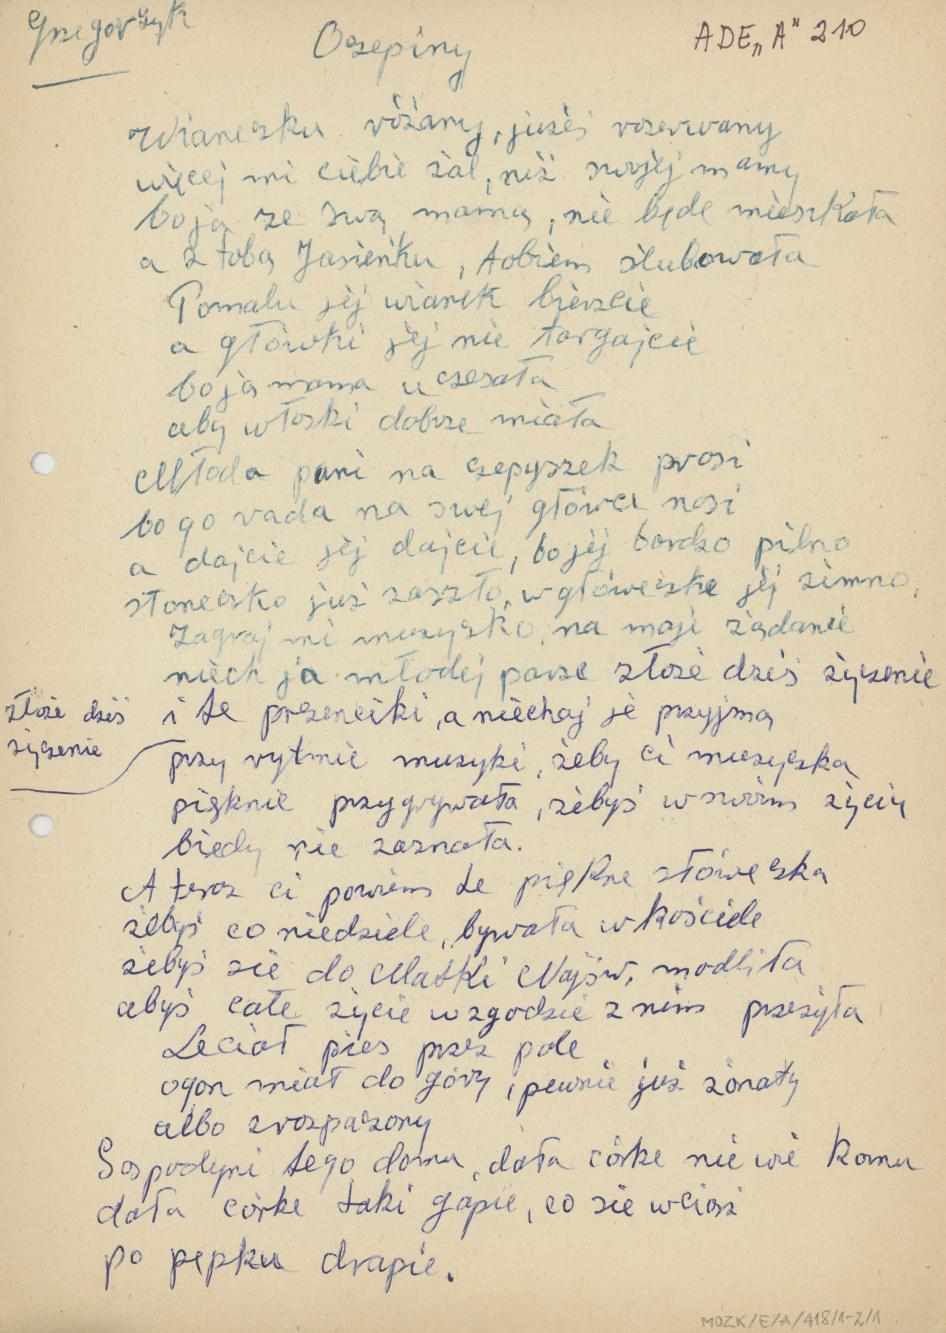 Grzegorzyk
Oczepiny
ADE „A" 210
Wianeczku różany, jużeś rozerwany
więcej mi ciebie żal, niż swojej mamy
bo ja ze swą mamą, nie będę mieszkała
a z tobą Jasieńku, tobiem ślubowała
Pomalu jej wianek bierzcie
a główki jej nie targajcie
bo ją mama uczesała
aby włoski dobrze miała
Młoda pani na czepyszek prosi
bo go rada na swej główce nosi
a dajcie jej dajcie, bo jej bardzo pilno
słoneczko już zaszło, w główeczke jej zimno,
Zagraj mi muzyczko, na moje żądanie
niech ja młodej parze złoże dziś życzenie
złoże dziś
życzenie
i te prezenciki, a niechaj je przyjmą
przy rytmie muzyki, żeby ci muzyczka
pięknie przygrywała, żebyś w swoim życiu
biedy nie zaznała.
A teraz ci powiem te piękne słóweczka
żebyś co niedziele, bywała w kościele
żebyś sie do Matki Najśw. modliła
abyś całe życie w zgodzie z nim przeżyła
Leciał pies przez pole
ogon miał do góry, pewnie już żonaty
albo zrozpaczony
Gospodyni tego domu, dała córke nie wie komu
dała córke taki gapie, co sie wciąż
po pępku drapie.
MOZK/E/A/418/1-2/1